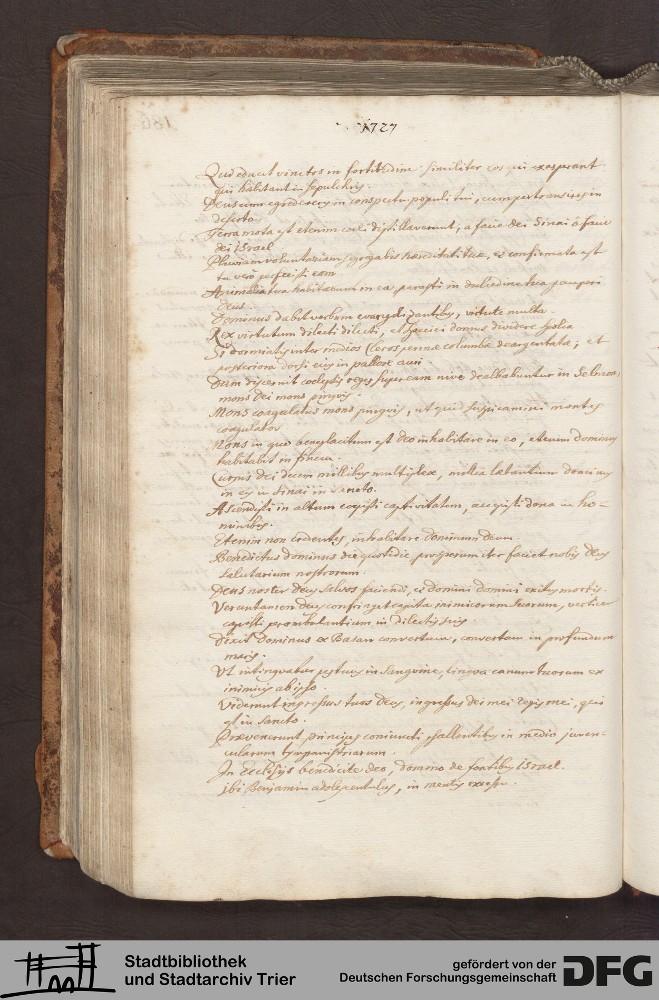 1727
Qui educit vinctos in fortitudine similiter eos qui exasperant
qui habitant in sepulchris.
Deus cum egredereris in conspectu populi tui, cum pertransires in
deserto
Terra mota est etenim coeli distillaverunt, a facie dei Sinai a facie
dei Israel
Pluviam voluntariam segregabis haereditati tuae, et confirmata est
tu vero perfecisti eam
Animalia tua habitabunt in ea parasti in dulcedine tua pauperi
Deus.
Dominus dabit verbum evangelizantibus, virtute multa.
Rex virtutum dilecti dilecti, et speciei domus dividere spolia
Si dormiatis inter medios Cleros pennae columbae deargentatae; et
posteriora dorsi eius in pallore auri.
Dum discernit coelestis reges super eam nive dealbabuntur in Selmon,
mons dei mons pinguis.
Mons coagulatus mons pinguis, ut quid suspicamini montes
coagulatos
Mons in quo beneplacitum est deo inhabitare in eo, etenim dominus
habitabit in finem.
Currus dei decem millibus multiplex, millia laetantium dominus
in eis in Sinai in sancto.
Ascendisti in altum cepisti captivitatem, accepisti dona in ho=
minibus.
Etenim non credentes, inhabitare dominum deum.
Benedictus dominus die quotidie prosperum iter faciet nobis Deus
salutarium nostrorum.
Deus noster deus salvos faciendi, et domini domini exitus mortis.
Veruntamen deus confringet capita inimicorum suorum, verticem
capilli perambulantium in delictis suis.
Dixit Dominus ex Basan convertam, convertam in profundum
maris.
Ut intinguatur pes tuus in sanguine, lingua canum tuorum ex
inimicis ab ipso.
Viderunt ingressus tuos Deus, ingressus dei mei regis mei, qui
est in sancto.
Praevenerunt principes coniuncti psallentibus in medio juven=
cularum tympanistriarum.
In Ecclesiis benedicite deo, domino de fontibus Israel.
Ibi Benjamin adolescentulus, in mentis excessu.
Stadtbibliothek
und Stadtarchiv Trier
gefördert von der
Deutschen Forschungsgemeinschaft
DFG